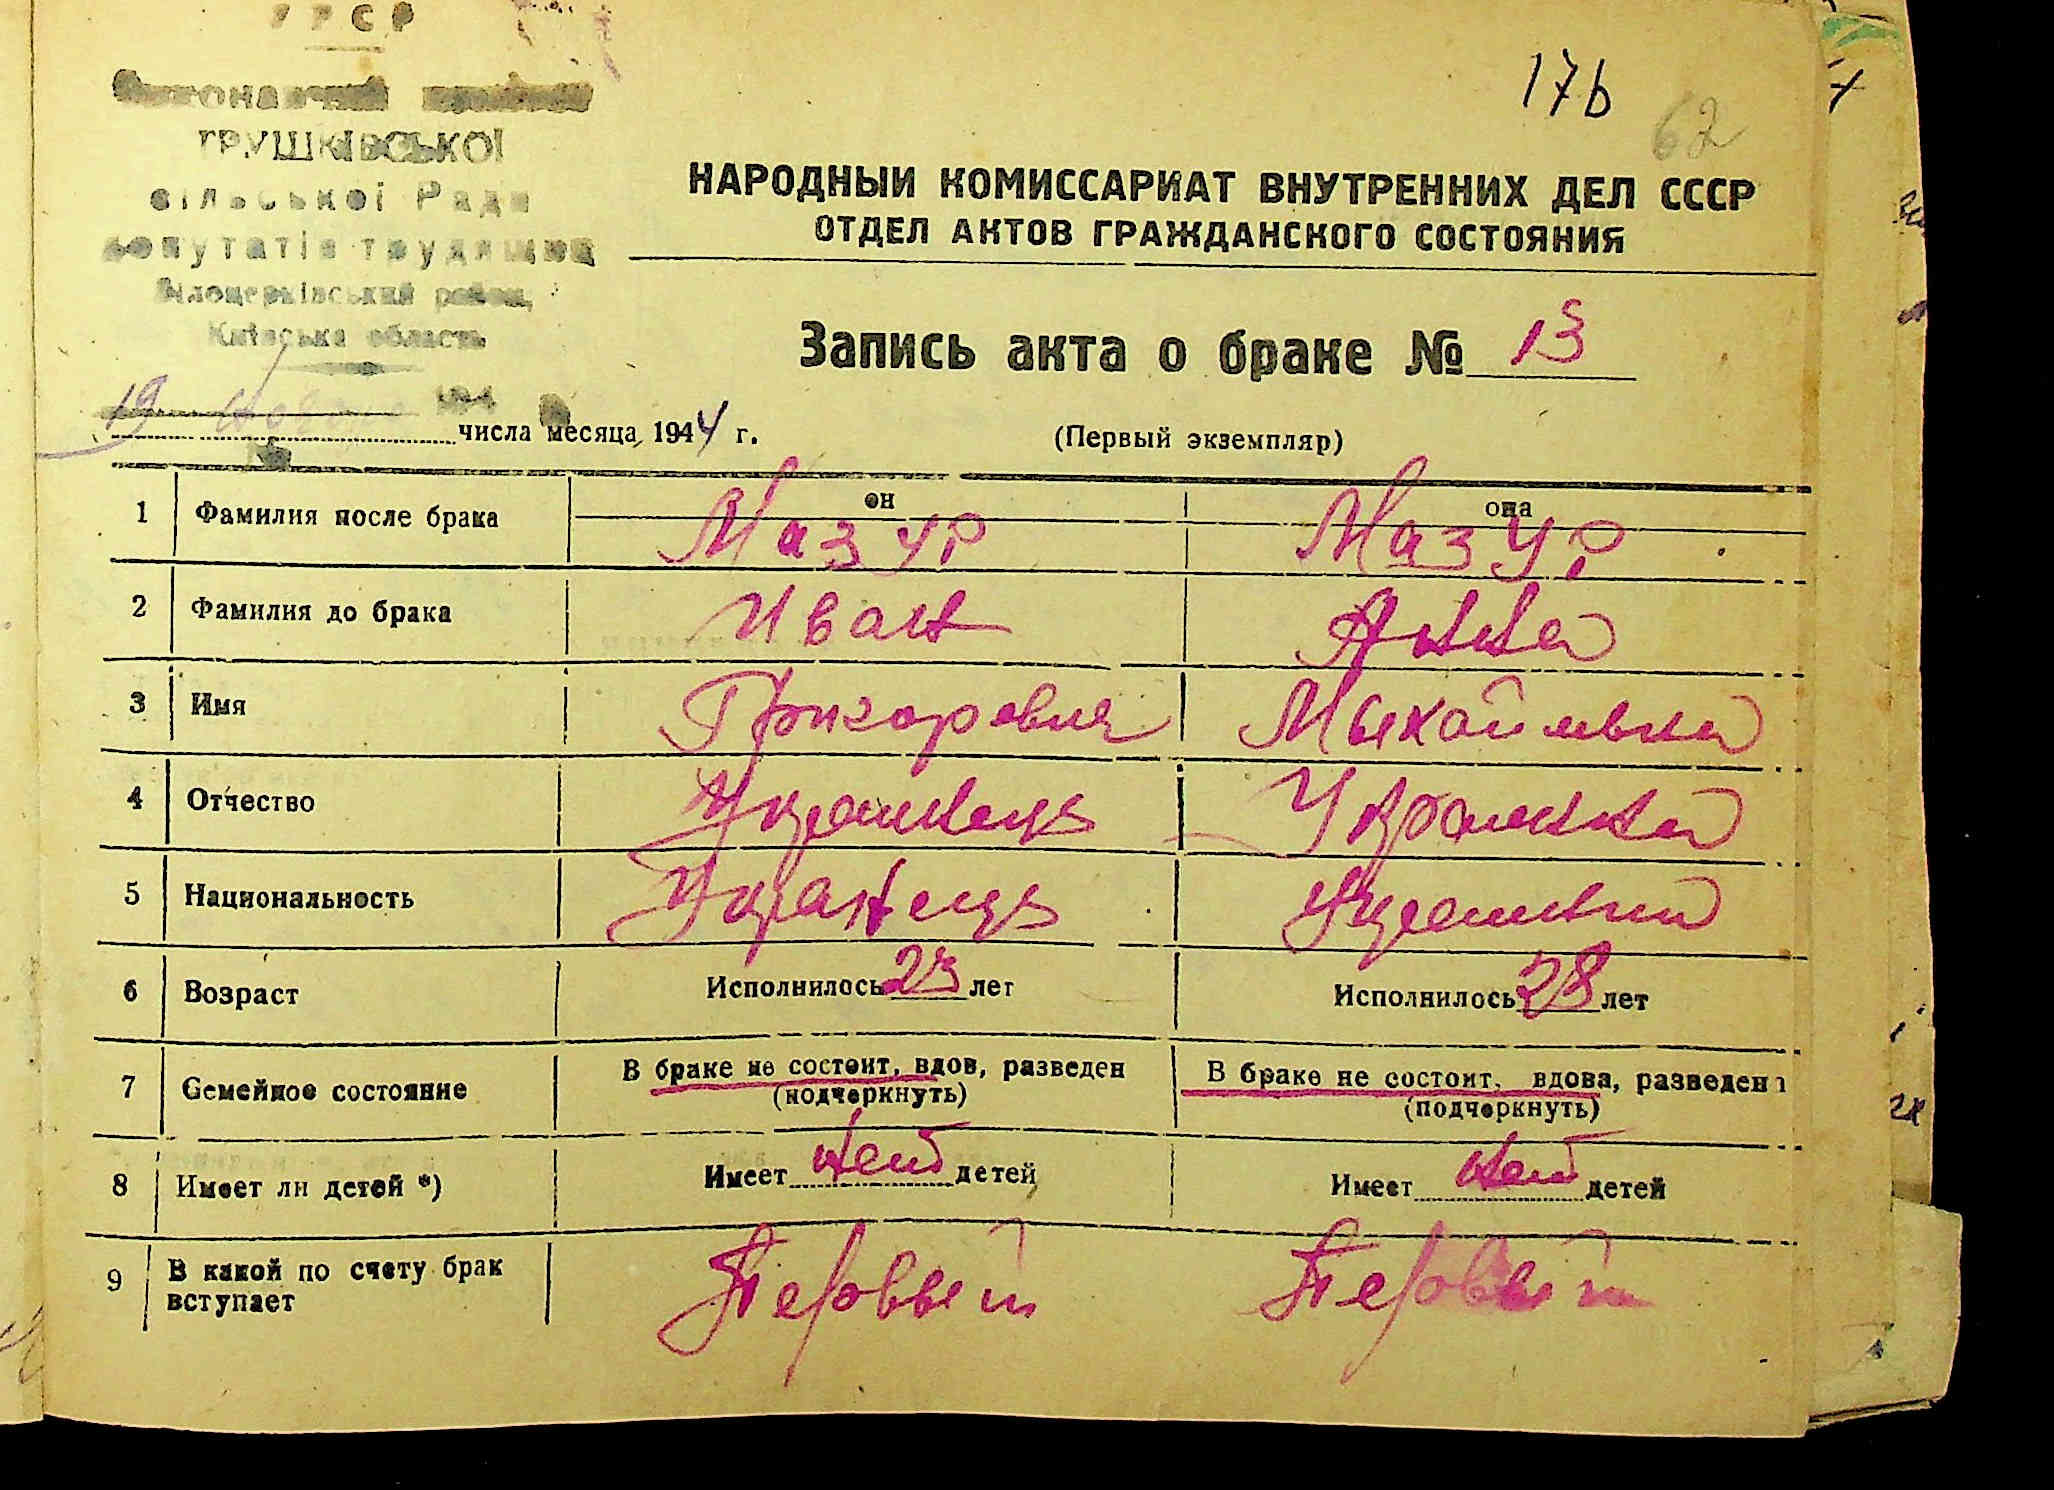 УРСР
Виконавчий комітет
ГРУШКІВСЬКОЇ
сільської Ради
депутатів трудящих
Білоцерківський район,
Київська область
17b
62
НАРОДНЫЙ КОМИССАРИАТ ВНУТРЕННИХ ДЕЛ СССР
ОТДЕЛ АКТОВ ГРАЖДАНСКОГО СОСТОЯНИЯ
Запись акта о браке № 13
19 числа месяца 1944 г.
(Первый экземпляр)
он она
1 Фамилия после брака Мазур Мазур
2 Фамилия до брака Иван Анна
3 Имя Григоревич Михайлвна
4 Отчество Украинець Украинка
5 Национальность Укранець Украинка
6 Возраст Исполнилось 23 лет Исполнилось 28 лет
7 Семейное состояние В браке не состоит, вдов, разведен В браке не состоит, вдова, разведен
(подчеркнуть) (подчеркнуть)
8 Имеет ли детей *) Имеет нет детей Имеет нет детей
9 В какой по счету брак Первый Первый
вступает